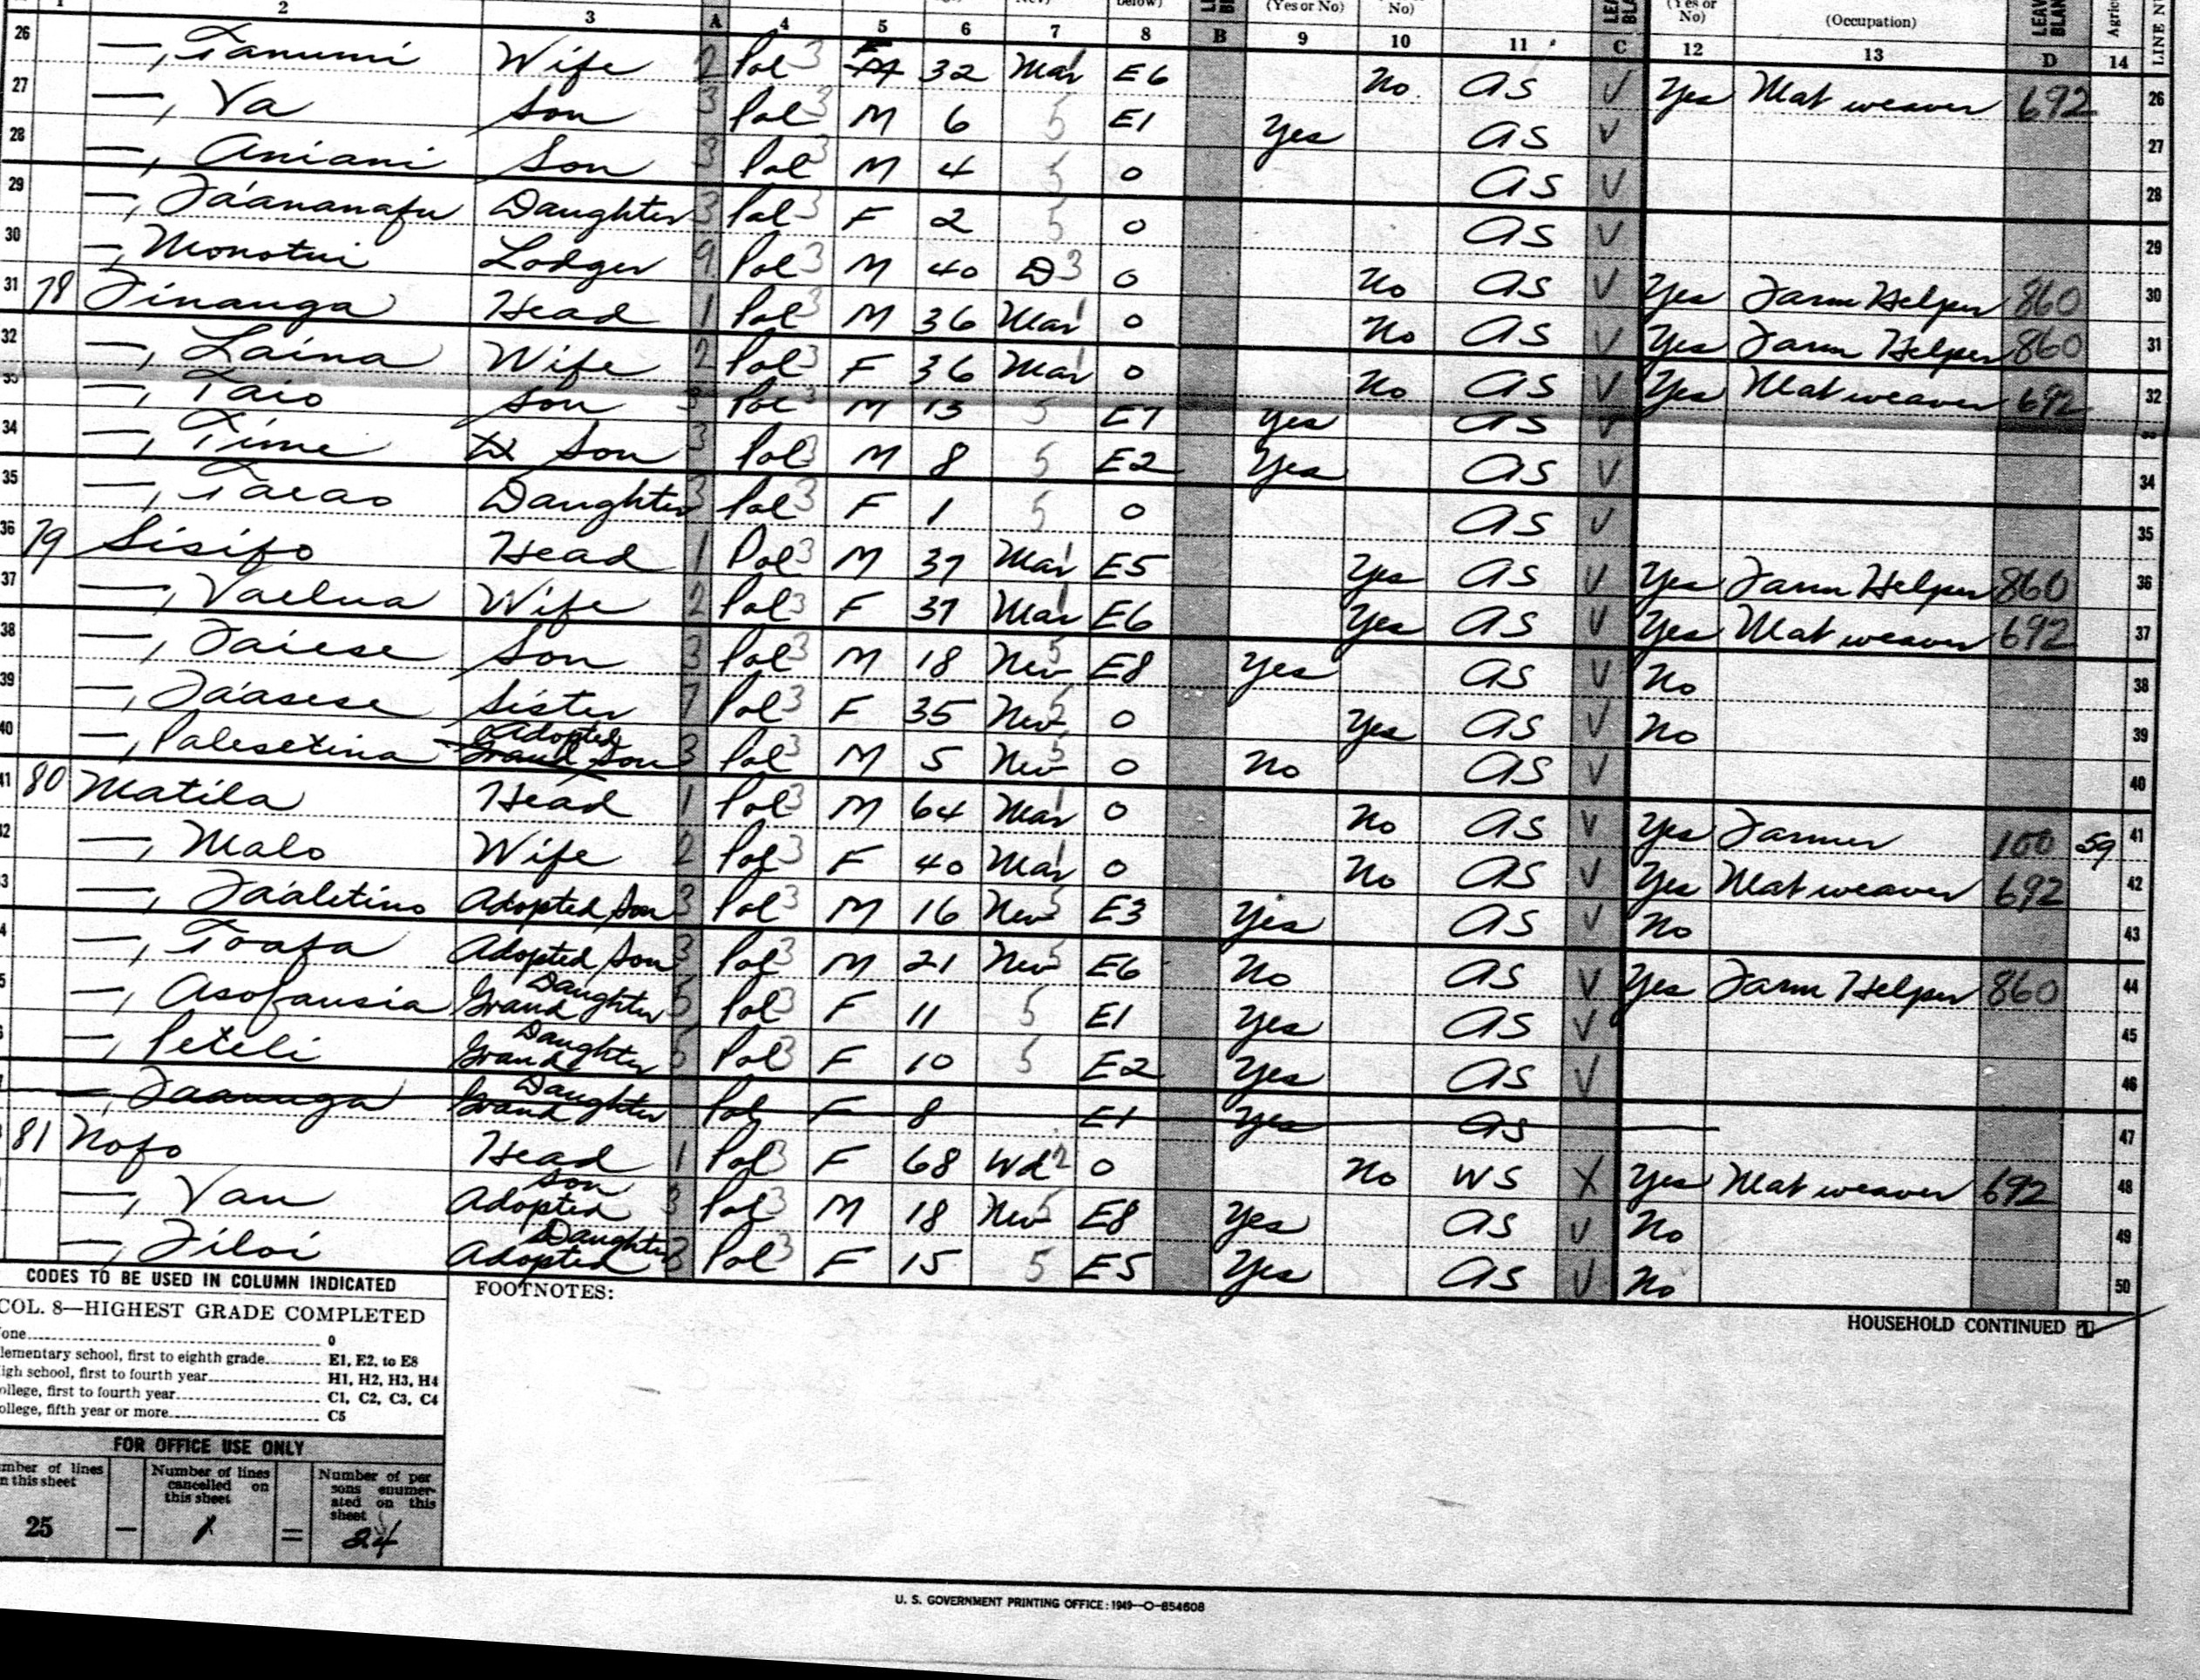 below) (Yes or No) No) (Yes or No) (Occupation) LEAVE BLANK Agric LINE NU
2 3 A 4 5 6 7 8 B 9 10 11 C 12 13 D 14
26 —, Tanumi Wife 2 Pol 3 F 32 Mar 1 E6 No AS V Yes Mat weaver 692 26
27 —, Va Son 3 Pol 3 M 6 5 E1 Yes AS V 27
28 —, Aniani Son 3 Pol 3 M 4 5 0 AS V 28
29 —, Fa'ananafu Daughter 3 Pol 3 F 2 5 0 AS V 29
30 —, Monotui Lodger 9 Pol 3 M 40 D 3 0 No AS V Yes Farm Helper 860 30
31 78 Finauga Head 1 Pol 3 M 36 Mar 1 0 No AS V Yes Farm Helper 860 31
32 —, Laina Wife 2 Pol 3 F 36 Mar 1 0 No AS V Yes Mat weaver 692 32
33 —, Taio Son 3 Pol 3 M 13 5 E7 Yes AS V
34 —, Time Son 3 Pol 3 M 8 5 E2 Yes AS V 34
35 —, Taeao Daughter 3 Pol 3 F 1 5 0 AS V 35
36 79 Sisifo Head 1 Pol 3 M 37 Mar 1 E5 Yes AS V Yes Farm Helper 860 36
37 —, Vaelua Wife 2 Pol 3 F 37 Mar 1 E6 Yes AS V Yes Mat weaver 692 37
38 —, Faiese Son 3 Pol 3 M 18 Nev 5 E8 Yes AS V No 38
39 —, Fa'asese Sister 7 Pol 3 F 35 Nev 5 0 Yes AS V No 39
40 —, Palesetina Adopted Grand Son 3 Pol 3 M 5 Nev 5 0 No AS V 40
41 80 Matila Head 1 Pol 3 M 64 Mar 1 0 No AS V Yes Farmer 100 59 41
42 —, Malo Wife 2 Pol 3 F 40 Mar 1 0 No AS V Yes Mat weaver 692 42
3 —, Fa'aletino Adopted Son 3 Pol 3 M 16 Nev 5 E3 Yes AS V No 43
4 —, Toafa Adopted Son 3 Pol 3 M 21 Nev 5 E6 No AS V Yes Farm Helper 860 44
5 —, Asofausia Grand Daughter 5 Pol 3 F 11 5 E1 Yes AS V 45
6 —, Peteli Grand Daughter 5 Pol 3 F 10 5 E2 Yes AS V 46
—, Faauuga Grand Daughter Pol F 8 E1 Yes AS 47
81 Nofo Head 1 Pol 3 F 68 Wd 2 0 No WS X Yes Mat weaver 692 48
—, Vau Adopted Son 3 Pol 3 M 18 Nev 5 E8 Yes AS V No 49
—, Filoi Adopted Daughter 3 Pol 3 F 15 5 E5 Yes AS V No 50
CODES TO BE USED IN COLUMN INDICATED
FOOTNOTES:
HOUSEHOLD CONTINUED
COL. 8—HIGHEST GRADE COMPLETED
one 0
lementary school, first to eighth grade E1, E2, to E8
igh school, first to fourth year H1, H2, H3, H4
ollege, first to fourth year C1, C2, C3, C4
ollege, fifth year or more C5
FOR OFFICE USE ONLY
mber of lines n this sheet
Number of lines cancelled on this sheet
Number of per sons enumer- ated on this sheet
25 – 1 = 24
U. S. GOVERNMENT PRINTING OFFICE: 1949—O-854608